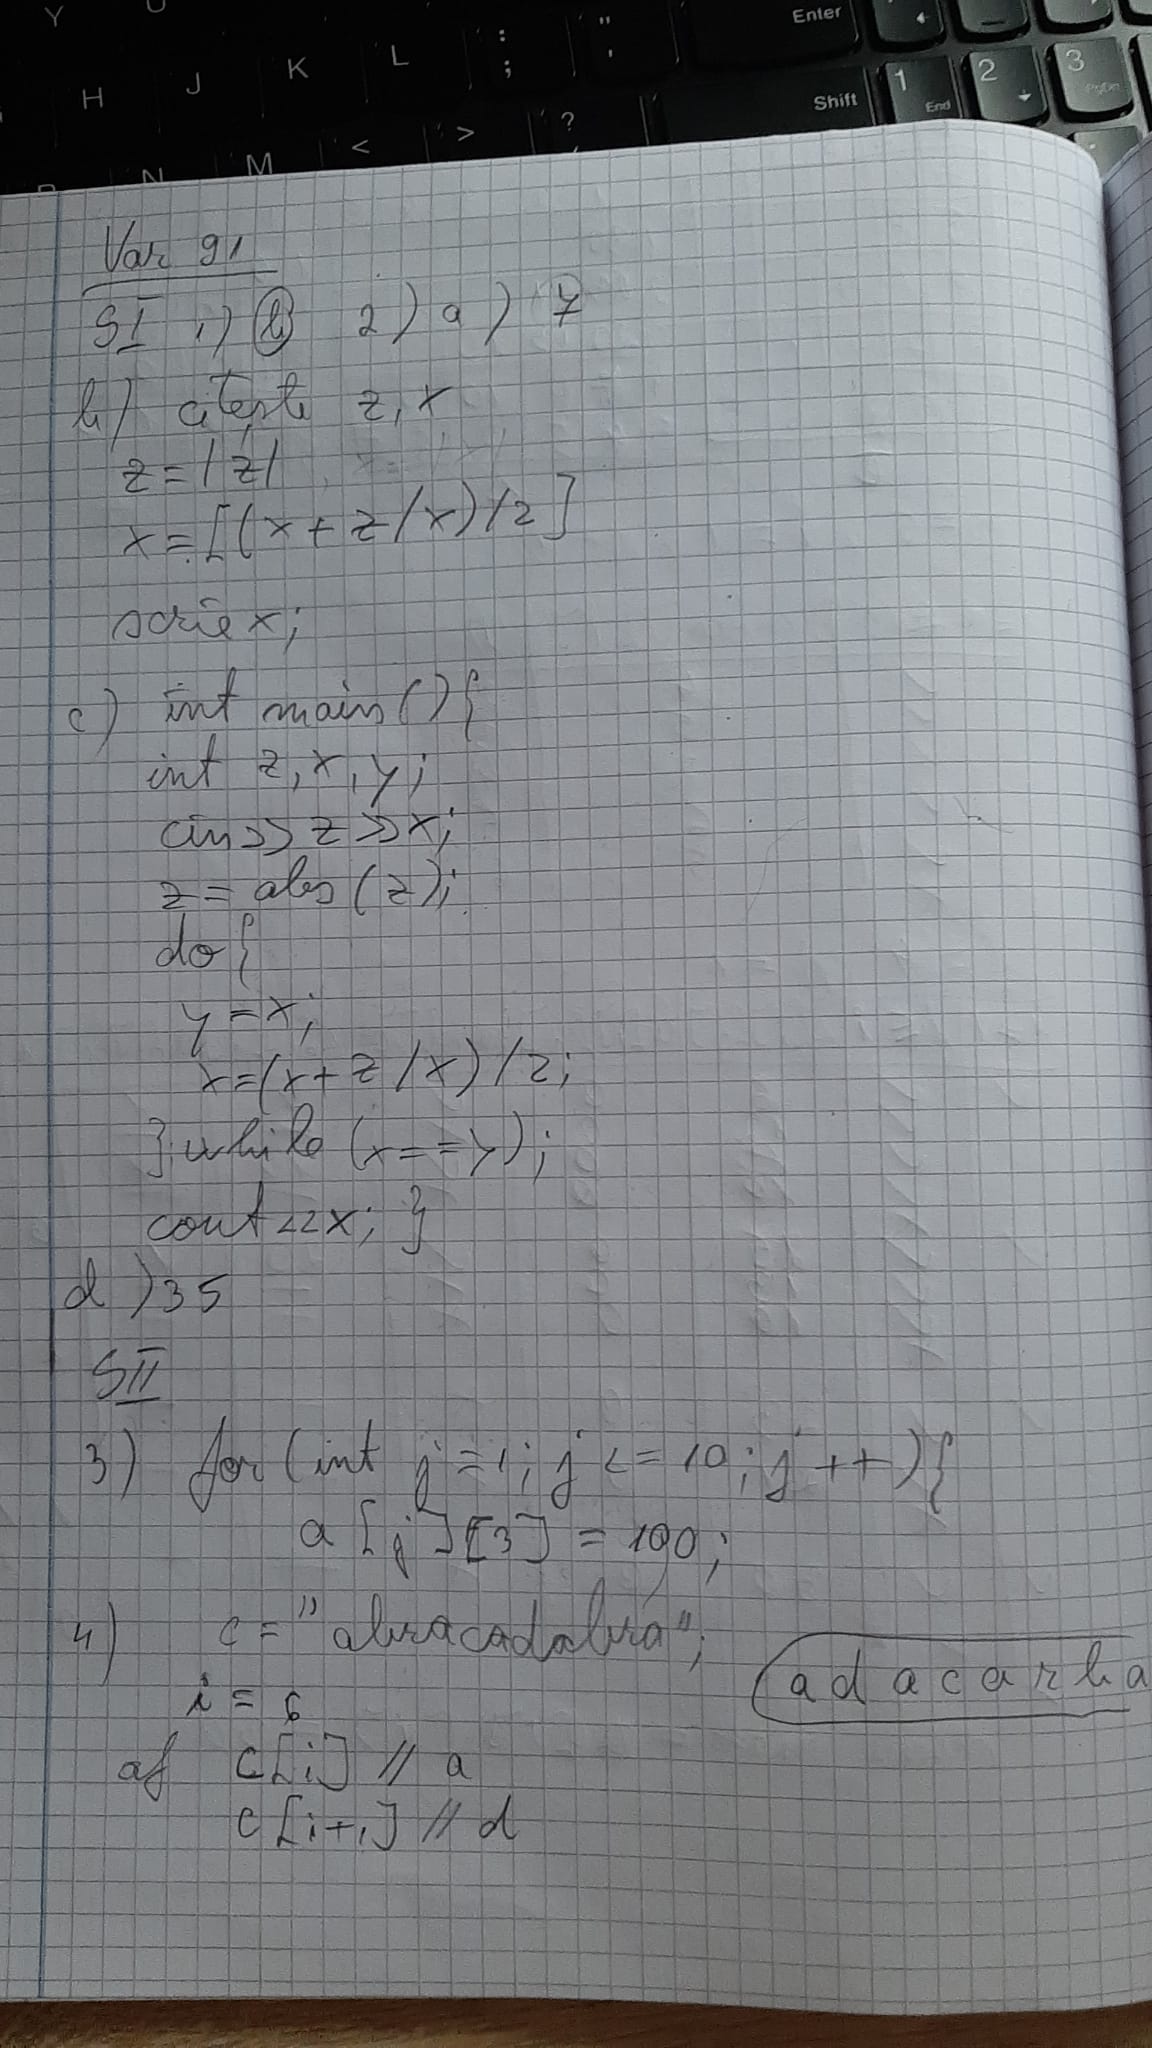 Y U
Enter
H J K L : ; " '
Shift 1 End 2 3 PgDn
N M < > ?
Var 91
SI 1) b 2) a) 7
b) citește z, x
z = |z|
x = [(x + z/x)/2]
scrie x;
c) int main(){
int z, x, y;
cin>>z>>x;
z = abs(z);
do{
y = x;
x=(x+z/x)/2;
}while(x==y);
cout<<x; }
d) 35
SII
3) for(int j=1; j<=10; j++){
a[j][3] = 100;
4) c = "abracadabra";
i = 6
adacarba
af c[i] // a
c[i+1] // d